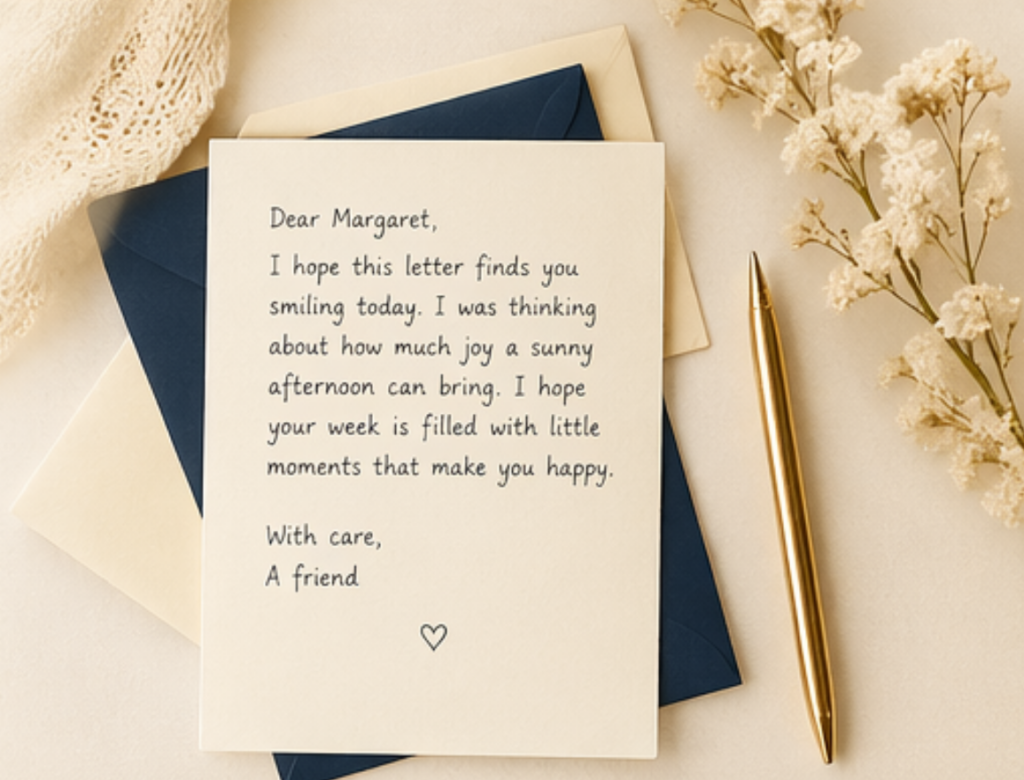 Dear Margaret,
I hope this letter finds you
smiling today. I was thinking
about how much joy a sunny
afternoon can bring. I hope
your week is filled with little
moments that make you happy.
With care,
A friend